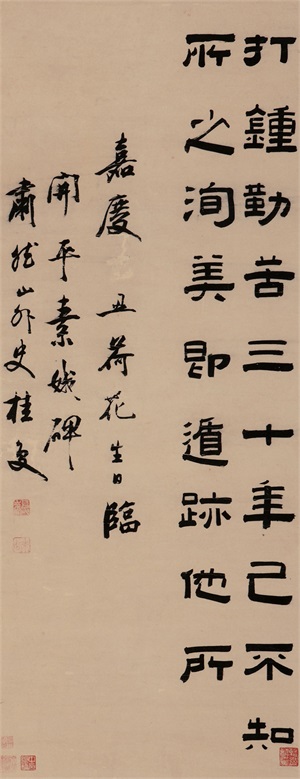 打鍾勤苦三十年己不知
所之洵美即遁跡他所
嘉慶丑荷花生日臨
開平素娥碑
肅然山外史桂复